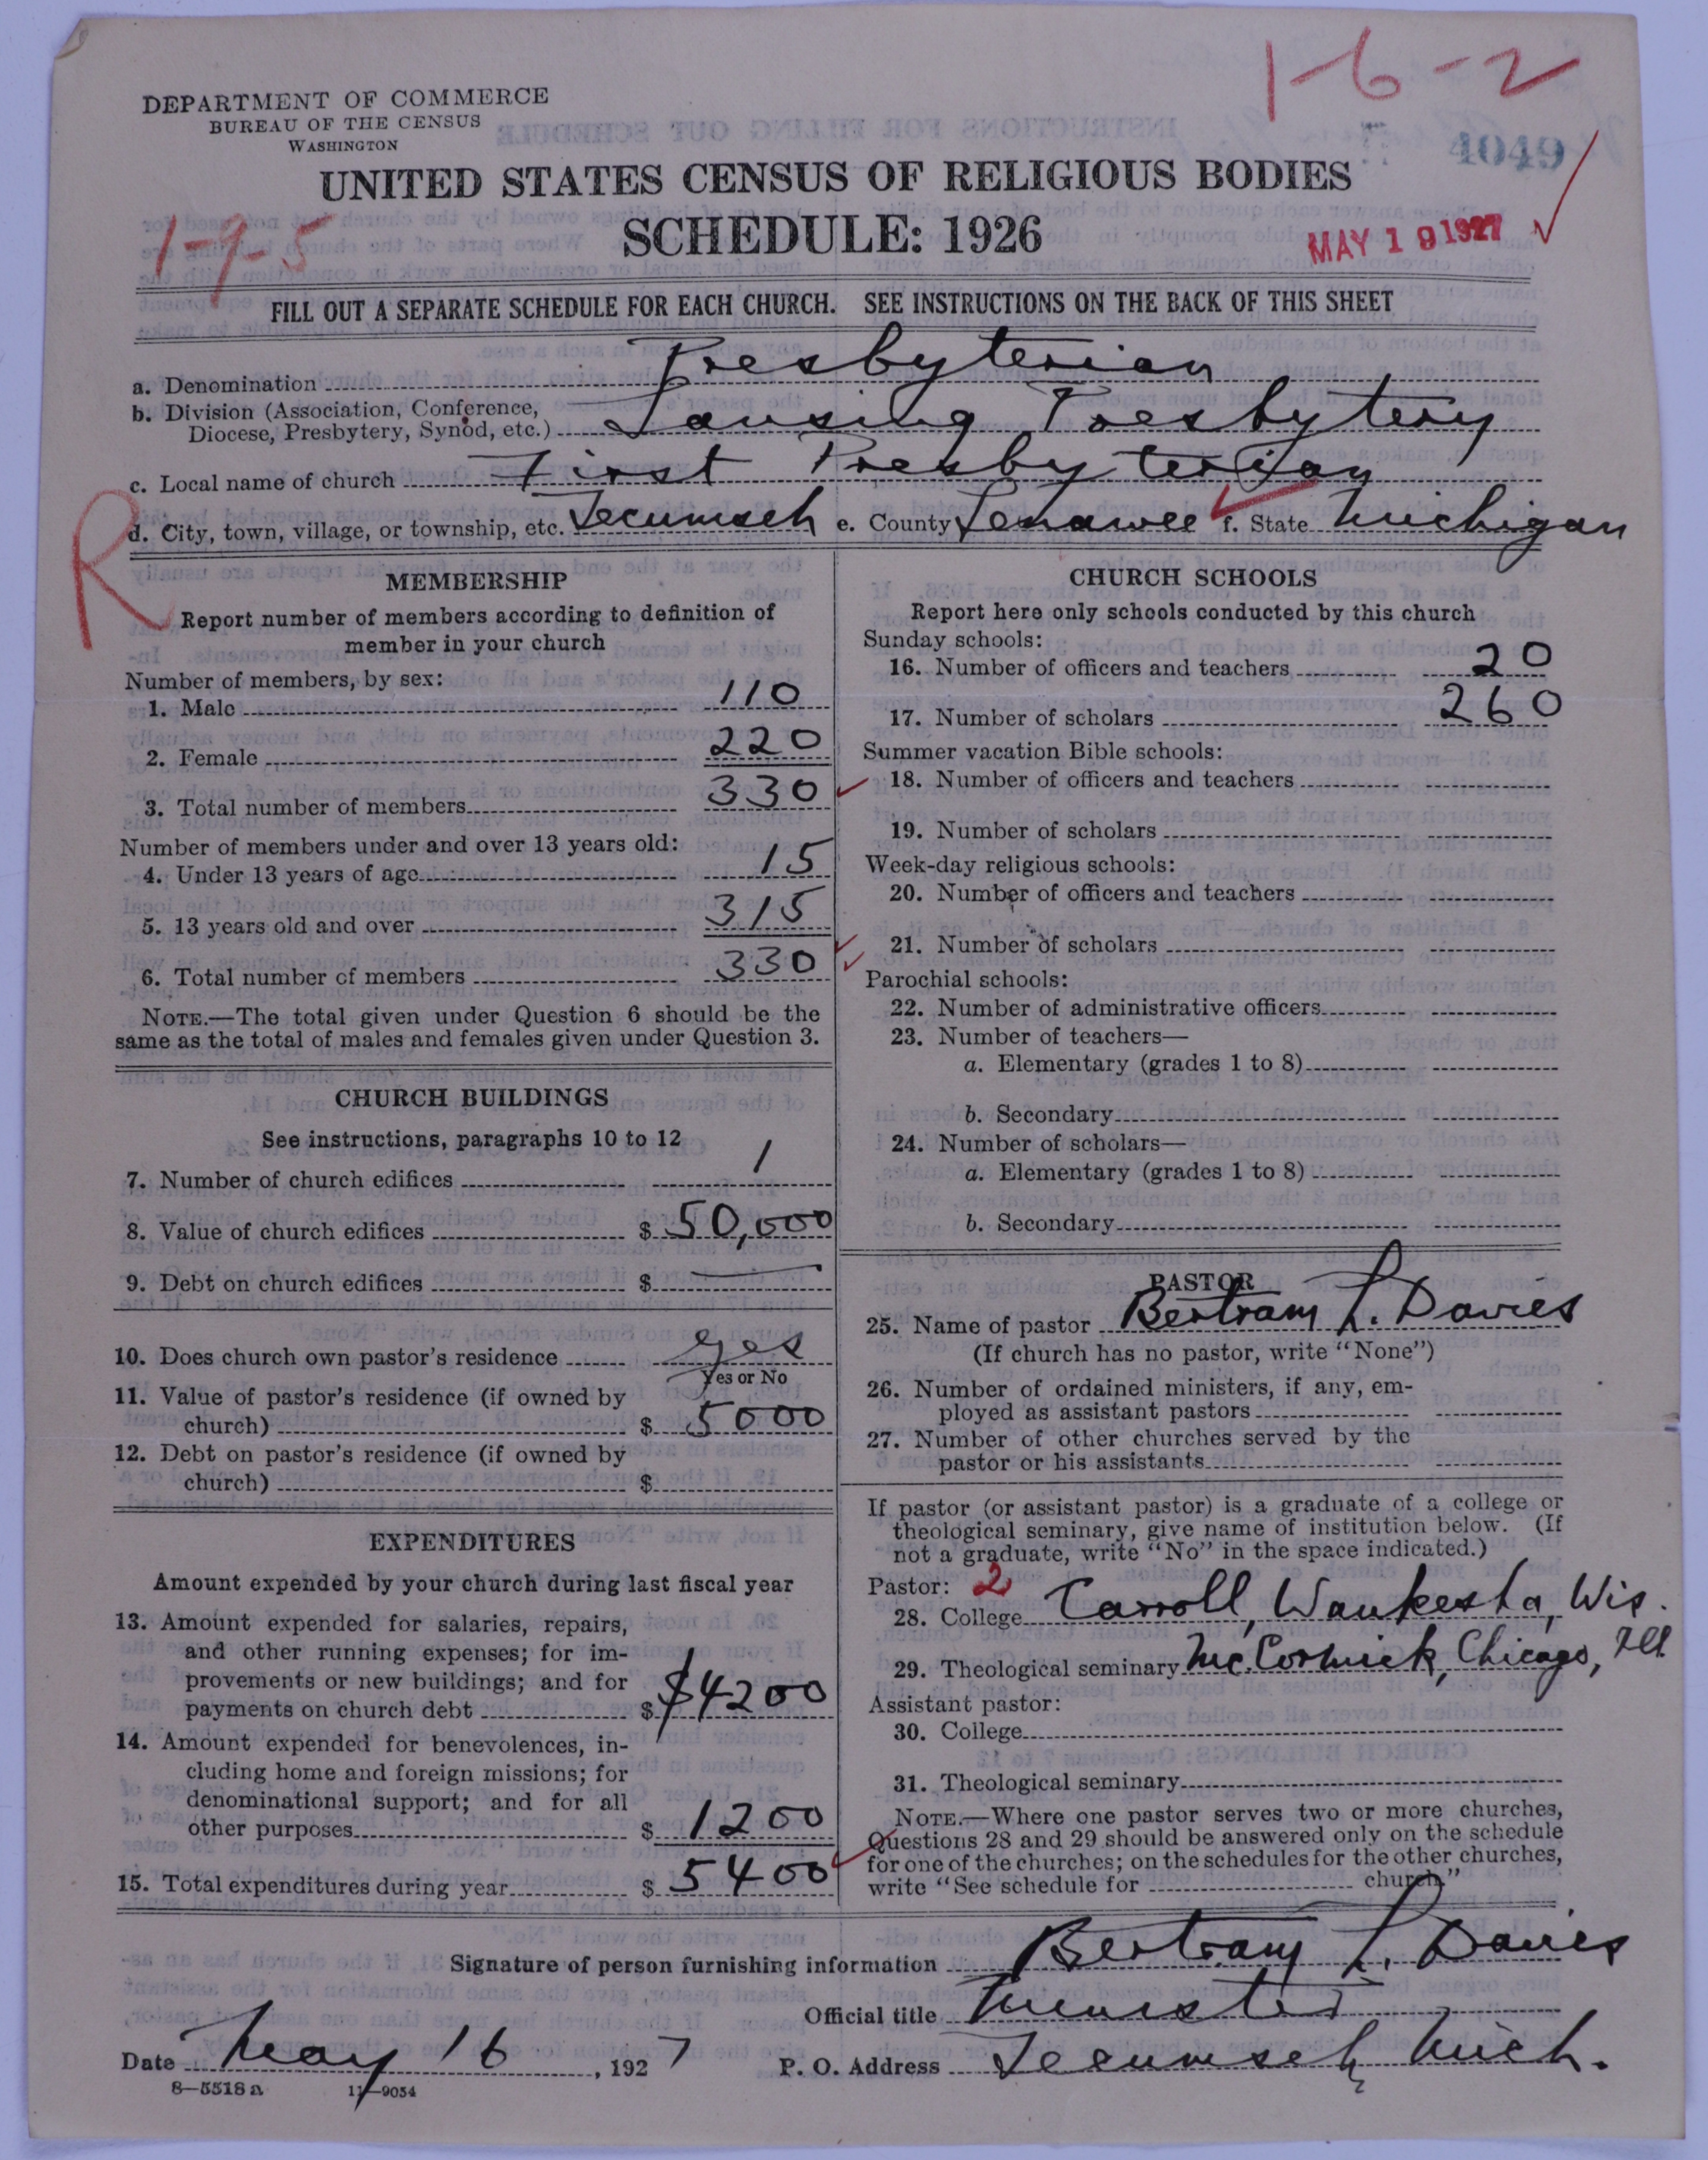 1-6-2
DEPARTMENT OF COMMERCE
BUREAU OF THE CENSUS
WASHINGTON
4049
UNITED STATES CENSUS OF RELIGIOUS BODIES
SCHEDULE: 1926
1-7-5
MAY 19 1927
FILL OUT A SEPARATE SCHEDULE FOR EACH CHURCH. SEE INSTRUCTIONS ON THE BACK OF THIS SHEET
a. Denomination Presbyterian
b. Division (Association, Conference,
Diocese, Presbytery, Synod, etc.) Lansing Presbytery
c. Local name of church First Presbyterian
R
d. City, town, village, or township, etc. Tecumseh e. County Lenawee f. State Michigan
MEMBERSHIP
Report number of members according to definition of
member in your church
Number of members, by sex:
1. Male 110
2. Female 220
3. Total number of members 330
Number of members under and over 13 years old:
4. Under 13 years of age 15
5. 13 years old and over 315
6. Total number of members 330
NOTE.—The total given under Question 6 should be the
same as the total of males and females given under Question 3.
CHURCH BUILDINGS
See instructions, paragraphs 10 to 12
7. Number of church edifices 1
8. Value of church edifices $ 50,000
9. Debt on church edifices $ —
10. Does church own pastor's residence yes
Yes or No
11. Value of pastor's residence (if owned by
church) $ 5000
12. Debt on pastor's residence (if owned by
church) $
EXPENDITURES
Amount expended by your church during last fiscal year
13. Amount expended for salaries, repairs,
and other running expenses; for im-
provements or new buildings; and for
payments on church debt $ $4200
14. Amount expended for benevolences, in-
cluding home and foreign missions; for
denominational support; and for all
other purposes $ 1200
15. Total expenditures during year $ 5400
CHURCH SCHOOLS
Report here only schools conducted by this church
Sunday schools:
16. Number of officers and teachers 20
17. Number of scholars 260
Summer vacation Bible schools:
18. Number of officers and teachers
19. Number of scholars
Week-day religious schools:
20. Number of officers and teachers
21. Number of scholars
Parochial schools:
22. Number of administrative officers
23. Number of teachers—
a. Elementary (grades 1 to 8)
b. Secondary
24. Number of scholars—
a. Elementary (grades 1 to 8)
b. Secondary
PASTOR
25. Name of pastor Bertram L. Davies
(If church has no pastor, write "None")
26. Number of ordained ministers, if any, em-
ployed as assistant pastors
27. Number of other churches served by the
pastor or his assistants
If pastor (or assistant pastor) is a graduate of a college or
theological seminary, give name of institution below. (If
not a graduate, write "No" in the space indicated.)
Pastor: 2
28. College Carroll, Waukesha, Wis.
29. Theological seminary McCormick, Chicago, Ill
Assistant pastor:
30. College
31. Theological seminary
NOTE.—Where one pastor serves two or more churches,
Questions 28 and 29 should be answered only on the schedule
for one of the churches; on the schedules for the other churches,
write "See schedule for church."
Signature of person furnishing information Bertram L. Davies
Official title Minister
Date May 16, 1927 P. O. Address Tecumseh, Mich.
8—5518a 11—9054